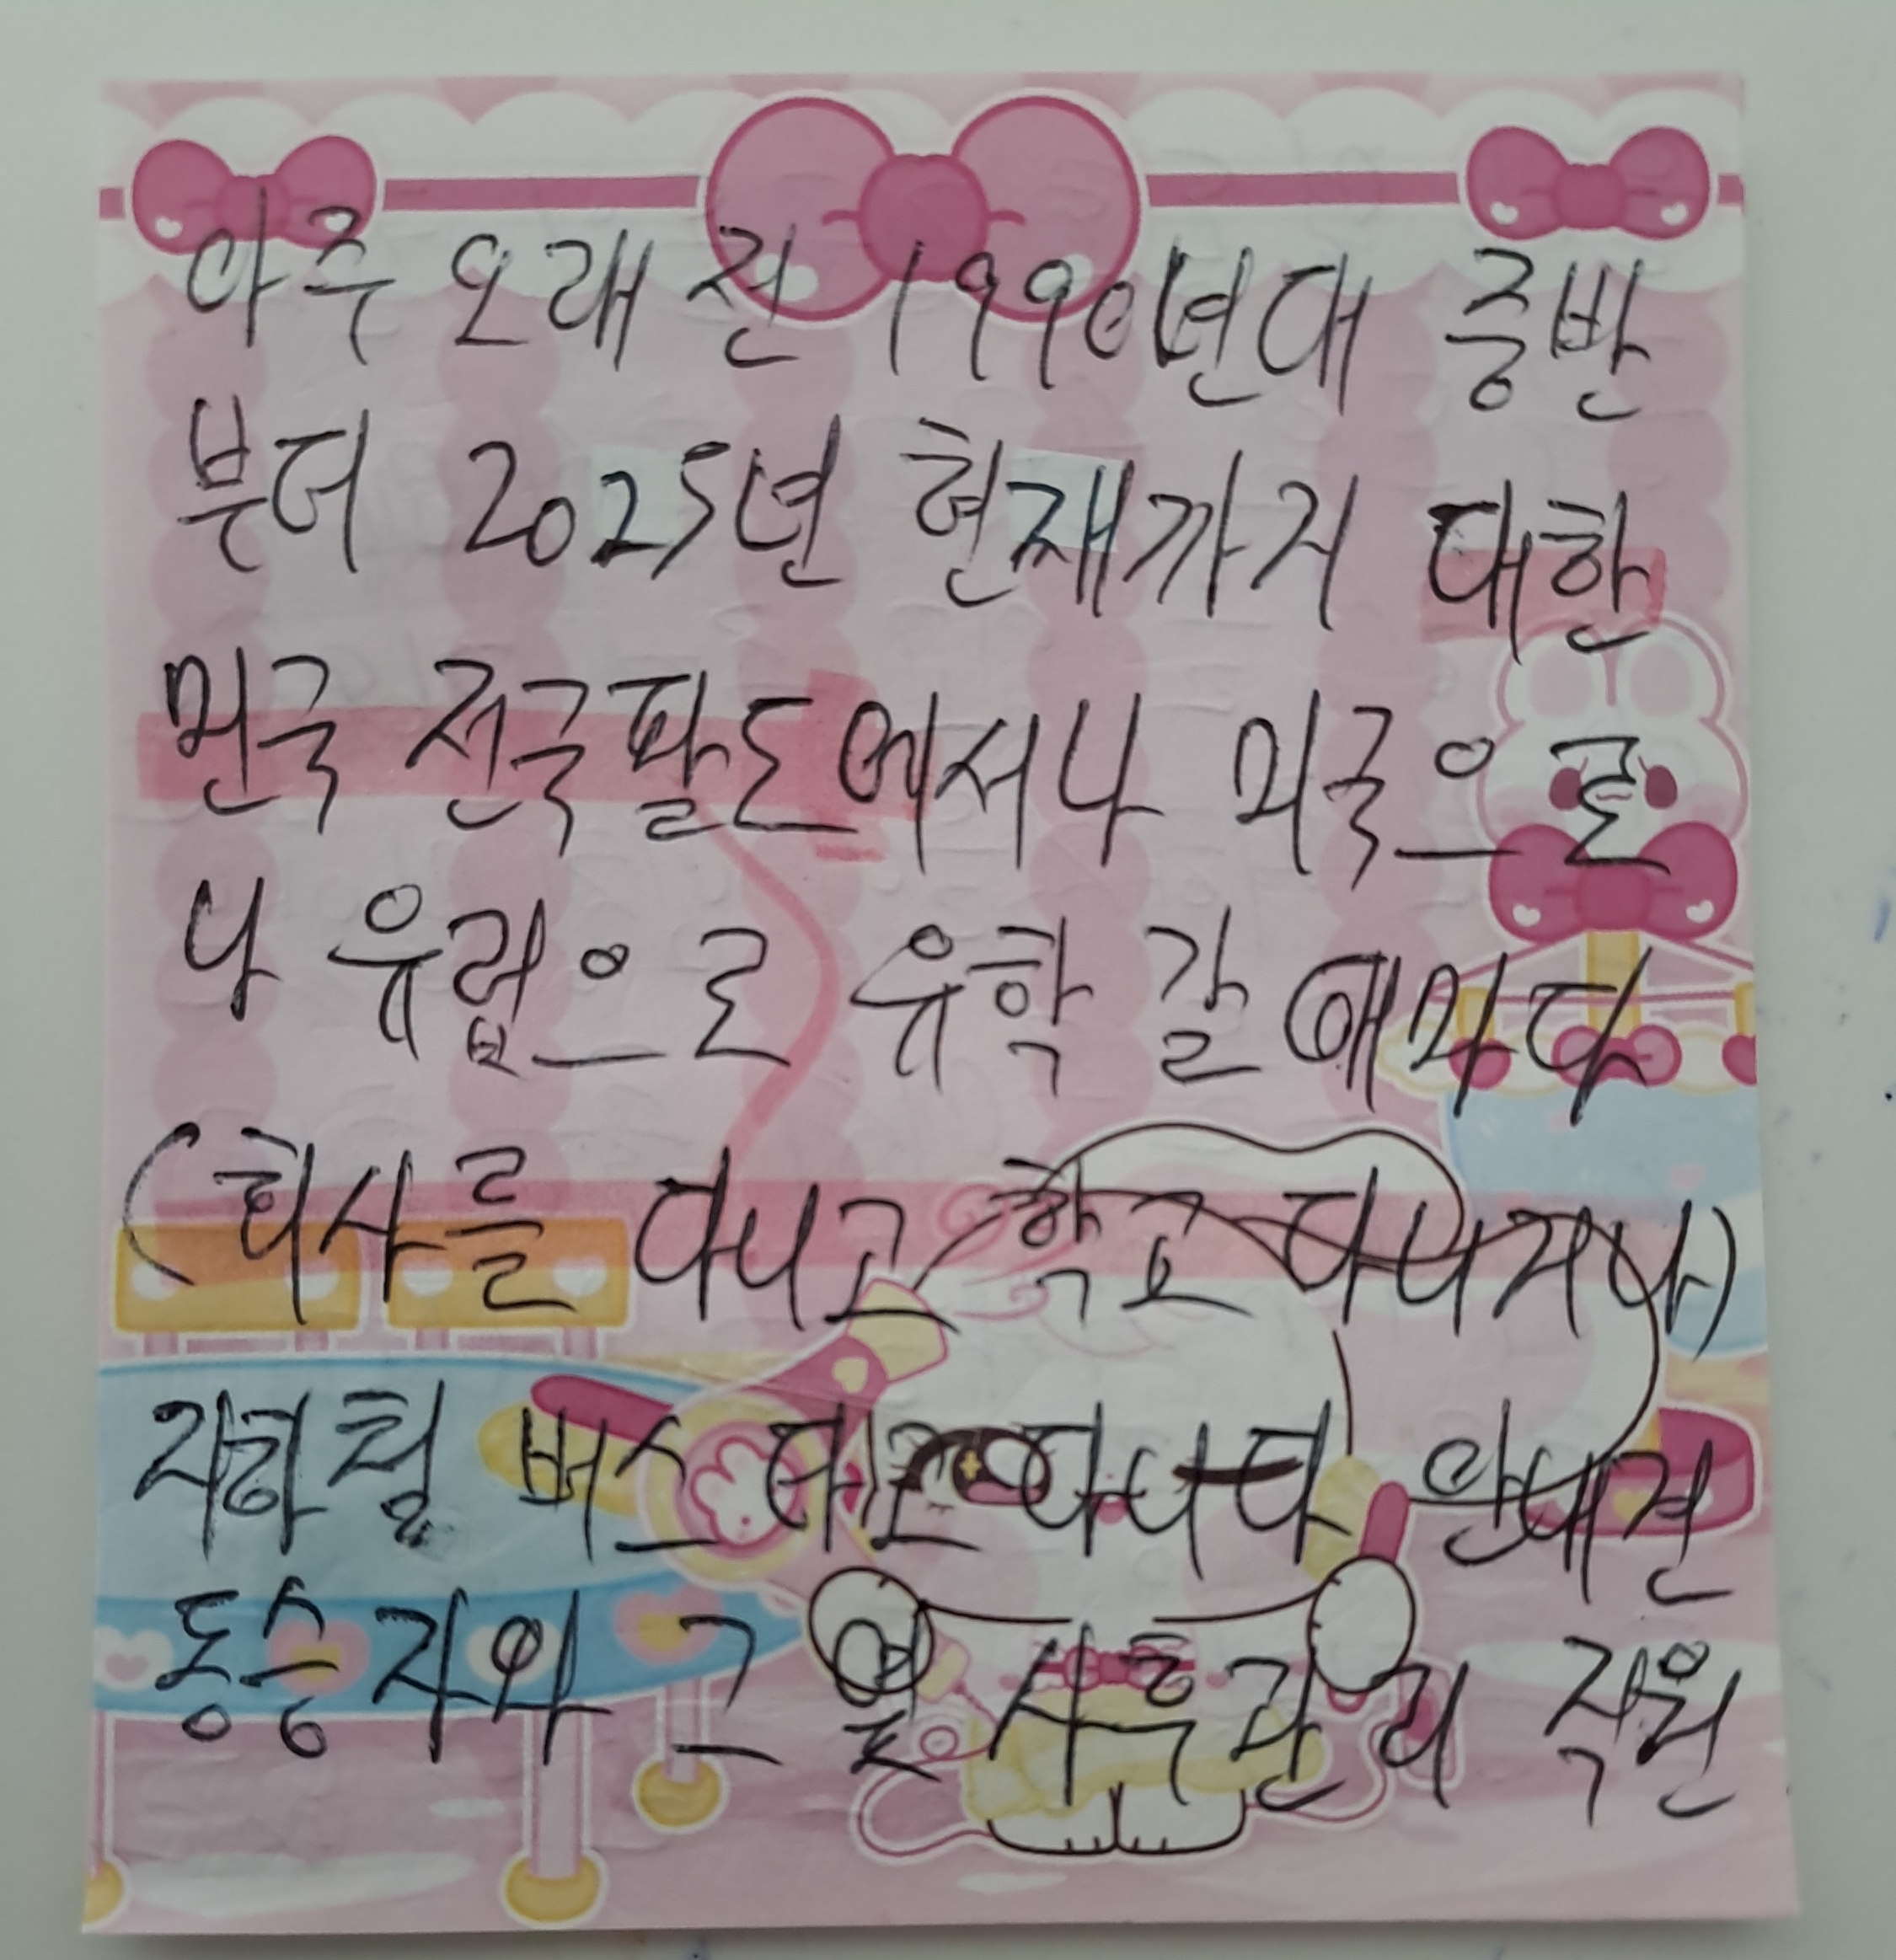 아주 오래 전 1990년대 중반
부터 2025년 현재까지 대한
민국 전국팔도에서나 미국으로
나 유럽으로 유학 갈 때마다
(회사를 다니고 학교 다니거나)
지하철 버스 타고 다니다 안내견
동승자와 그 옆 사육관리 직원